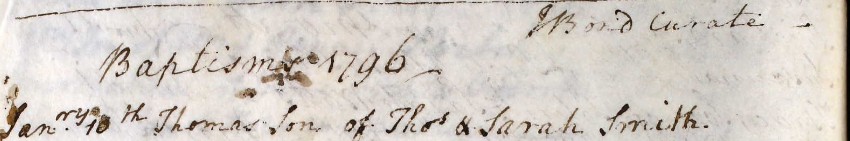 J Bond Curate
Baptisms 1796
Janry 10th Thomas Son of Thos & Sarah Smith.